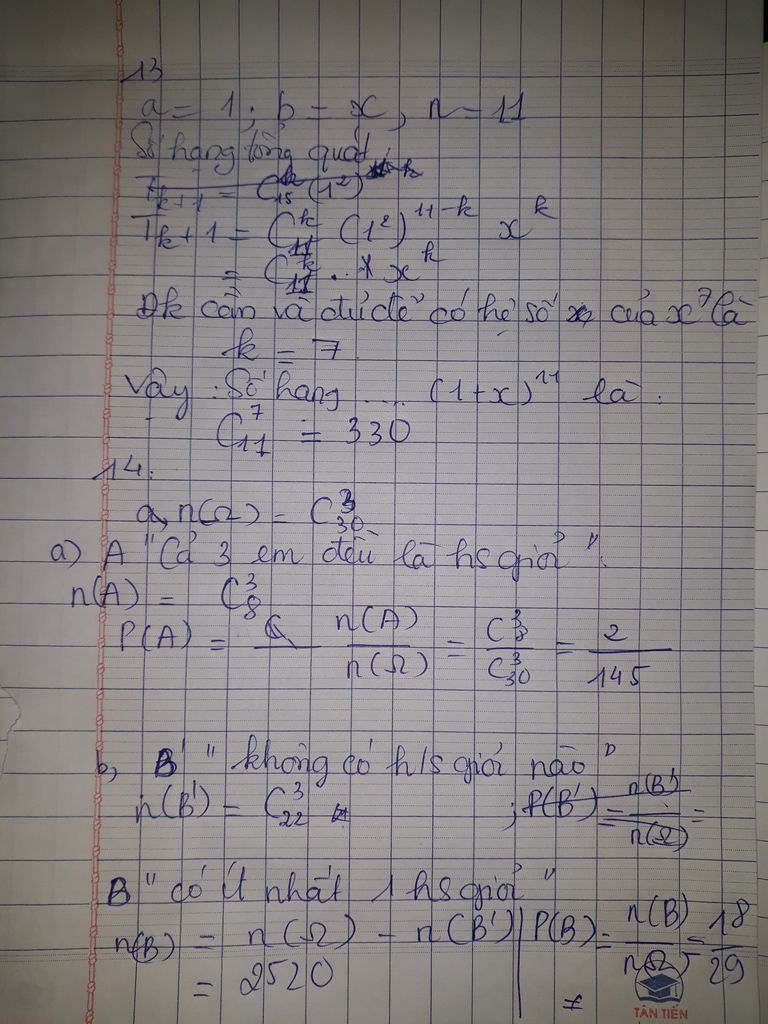 13
a = 1 ; b = x, n = 11
Số hạng tổng quát
T_{k+1} = C_{15}^{k} (1²)
T_{k+1} = C_{11}^{k} (1²)^{11-k} x^{k}
= C_{11}^{k} . 1 x^{k}
Đk cần và đủ để có hệ số của x⁷ là
k = 7
Vậy : Số hạng .... (1+x)^{11} là :
C_{11}^{7} = 330
14.
a, n(Ω) = C_{30}^{3}
a) A "Cả 3 em đều là hs giỏi".
n(A) = C_{8}^{3}
P(A) = n(A)/n(Ω) = C_{8}^{3}/C_{30}^{3} = 2/145
b, B' "không có h/s giỏi nào"
n(B') = C_{22}^{3} ; P(B') = n(B')/n(Ω) =
B "có ít nhất 1 hs giỏi"
n(B) = n(Ω) - n(B') | P(B) = n(B)/n(Ω) = 18/29
= 2520
TÂN TIẾN